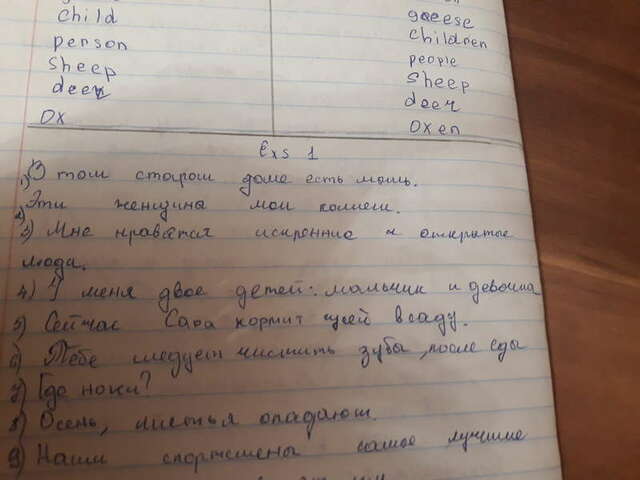 child geese
person children
sheep people
deer sheep
ox deer
oxen
Exs 1
1) В том старом доме есть мышь.
2) Эти женщина мои
3) Мне нравятся искренние и открытые
люди.
4) У меня двое детей: мальчик и девочка
5) Сейчас Сара кормит гусей в саду.
6) Тебе следует чистить зубы, после еды
7) Где ножи?
8) Осень, листья опадают.
9) Наши спортсмены самые лучшие